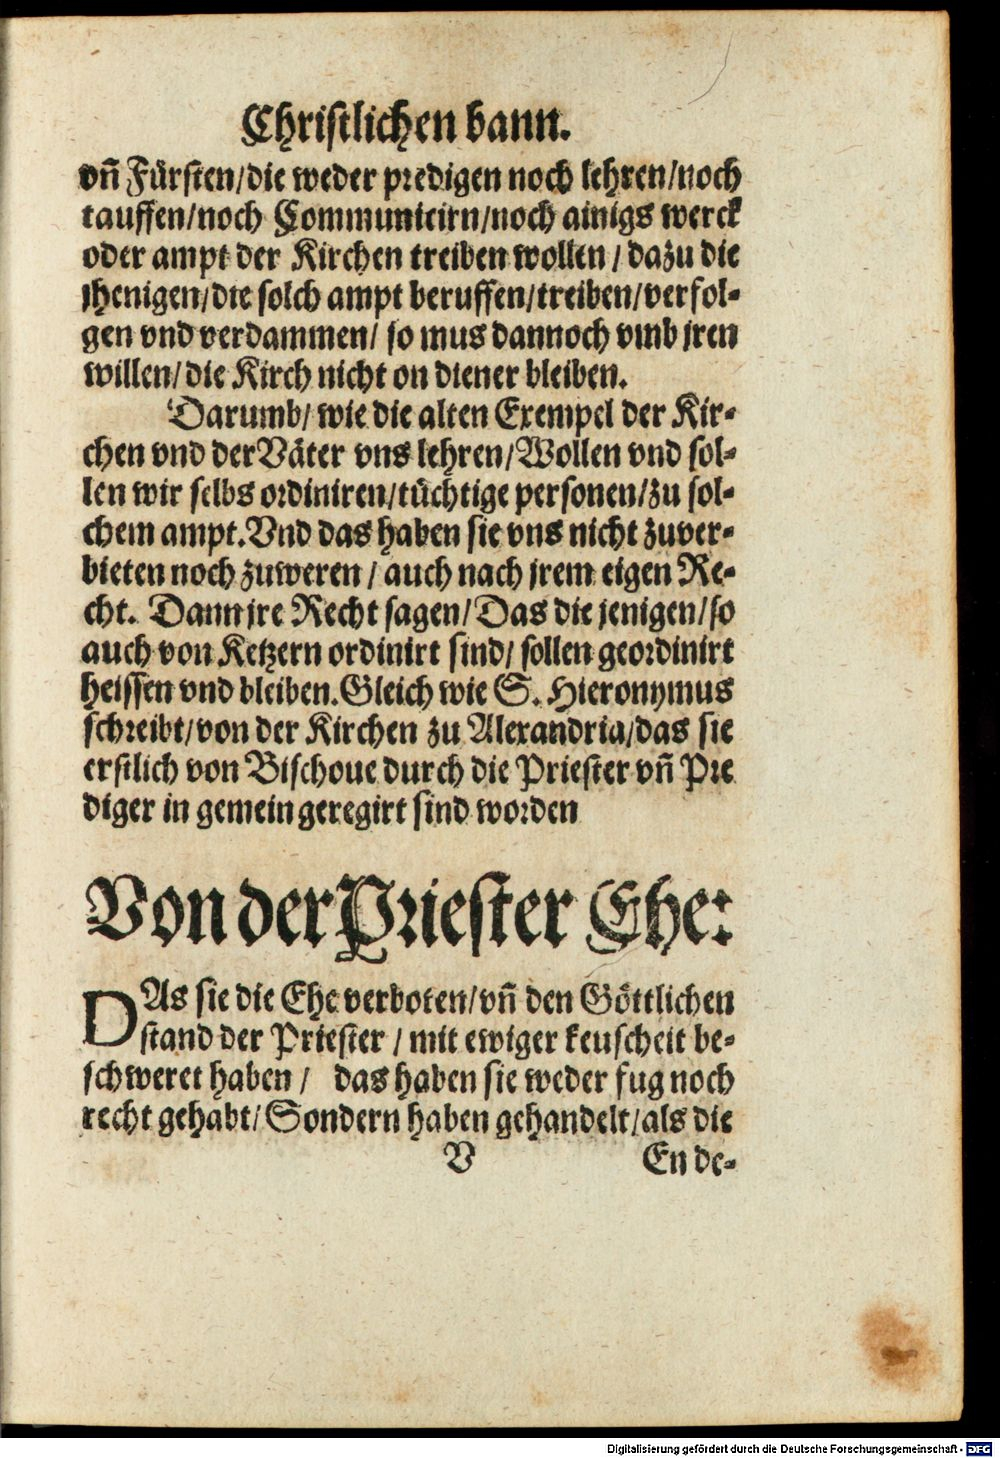 Christlichen bann.
vñ Fürsten/die weder predigen noch lehren/noch
tauffen/noch Communicirn/noch ainigs werck
oder ampt der Kirchen treiben wollen / dazu die
jhenigen/die solch ampt beruffen/treiben/verfol-
gen vnd verdammen/ so mus dannoch vmb jren
willen/die Kirch nicht on diener bleiben.
Darumb/ wie die alten Exempel der Kir-
chen vnd der Väter vns lehren/Wollen vnd sol-
len wir selbs ordiniren/tüchtige personen/zu sol-
chem ampt. Vnd das haben sie vns nicht zuver-
bieten noch zuweren / auch nach jrem eigen Re-
cht. Dann jre Recht sagen/Das die jenigen/so
auch von Ketzern ordinirt sind/ sollen geordinirt
heissen vnd bleiben. Gleich wie S. Hieronymus
schreibt/von der Kirchen zu Alexandria/das sie
erstlich von Bischoue durch die Priester vñ Pre
diger in gemein geregirt sind worden
Von der Priester Ehe:
DAs sie die Ehe verboten/vñ den Göttlichen
stand der Priester / mit ewiger keuscheit be-
schweret haben / das haben sie weder fug noch
recht gehabt/Sondern haben gehandelt/als die
V En de-
Digitalisierung gefördert durch die Deutsche Forschungsgemeinschaft - DFG